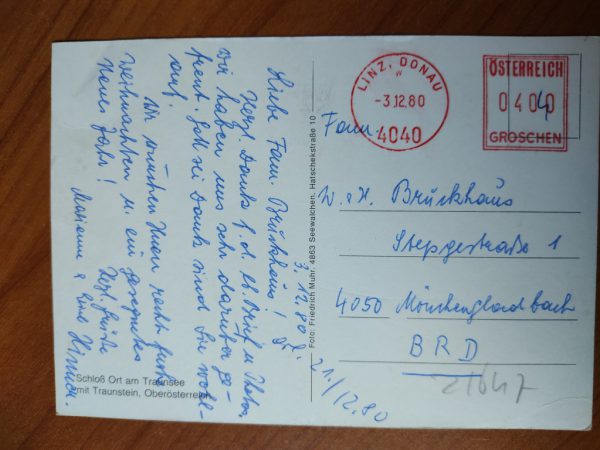 3.12.80
Liebe Fam. Brückhaus!
Herzl. Dank f. d. lb. Brief u. Photos.
Wir haben uns sehr darüber ge-
freut. Gott sei Dank sind Sie wohl-
auf.
Wir wünschen Ihnen recht frohe
Weihnachten u. ein gesegnetes
Neues Jahr!
Herzl. Grüße
Marianne &
Schloß Ort am Traunsee
mit Traunstein, Oberösterreich
Foto: Friedrich Muhr, 4863 Seewalchen, Hatschekstraße 10
LINZ, DONAU
w
-3.12.80
4040
ÖSTERREICH
0400
GROSCHEN
4
Fam.
W. u. H. Brückhaus
Stepgestraße 1
4050 Mönchengladbach
BRD
21./12.80
21647